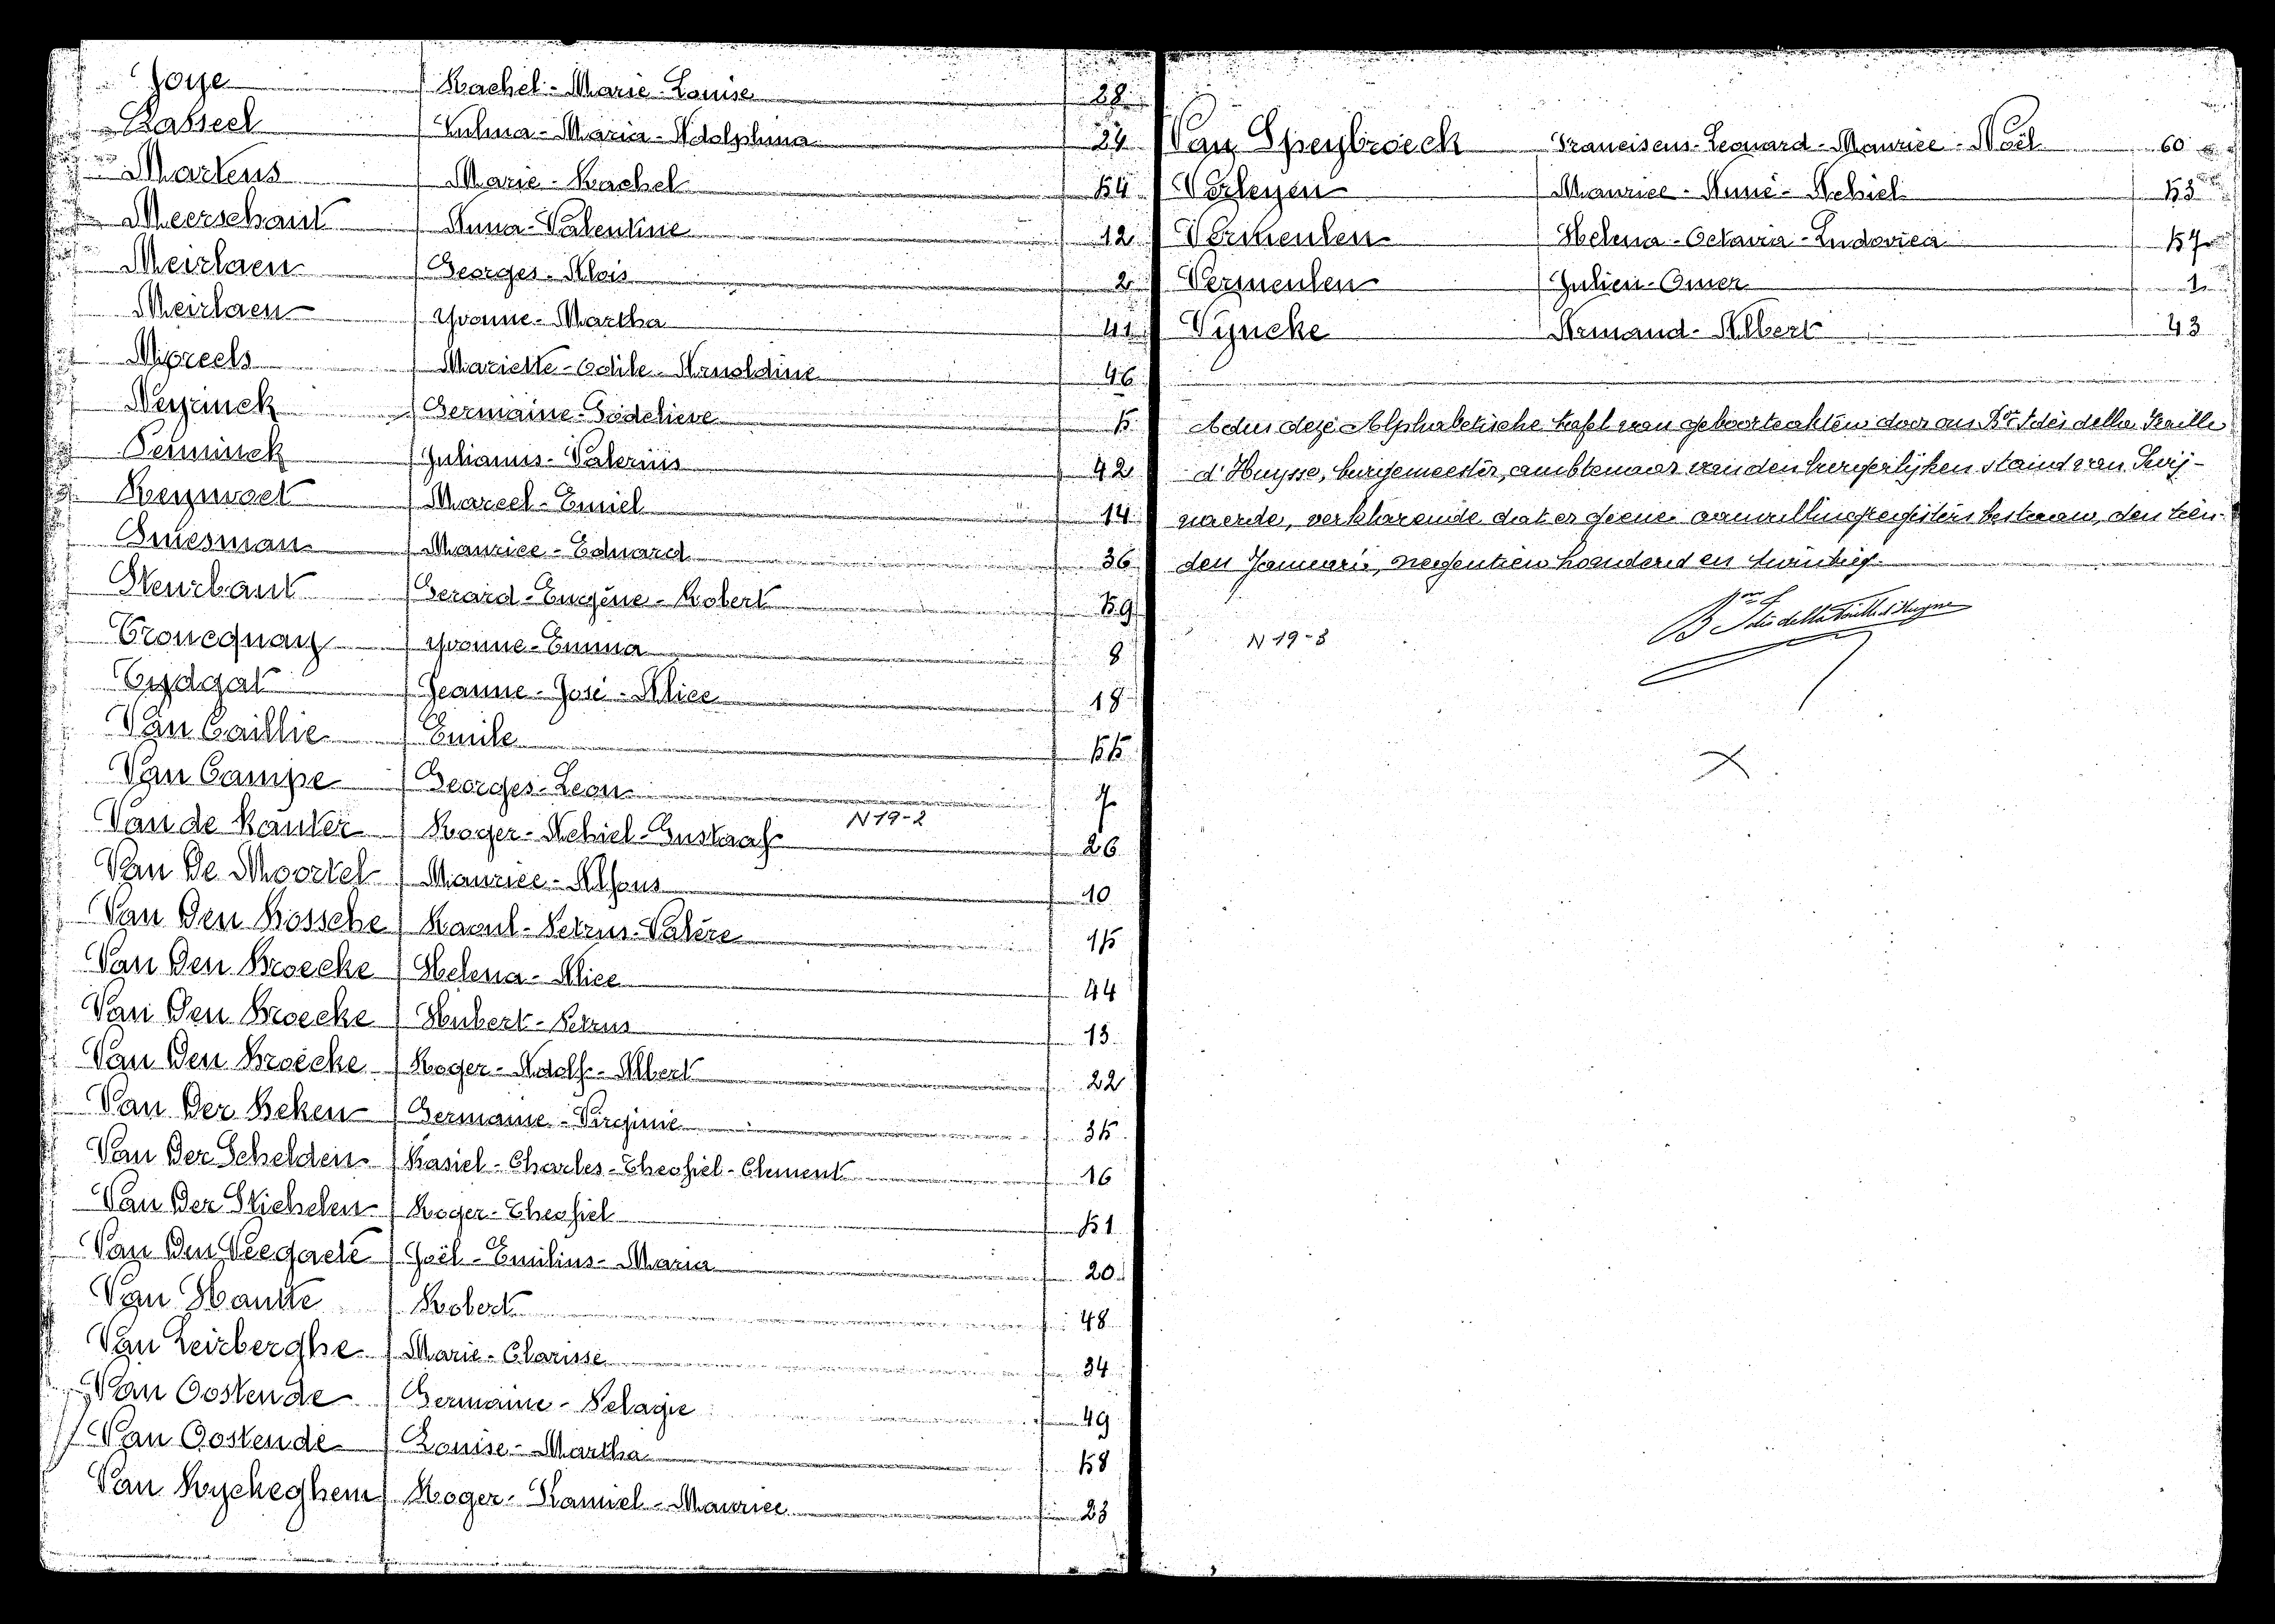 Joye Rachel - Marie - Louise 28
Kasseel Zulma - Maria - Adolphina 24
Martens Marie - Rachel 54
Meerschaut Anna - Valentine 12
Meirlaen Georges - Aloïs 2
Meirlaen Yvonne - Martha 41
Moreels Mariette - Odile - Arnoldine 46
Neyrinck Germaine - Godelieve 5
Penninck Julianus - Valerius 42
Reyvoet Marcel - Emiel 14
Smesman Maurice - Eduard 36
Steurbaut Gerard - Eugène - Robert 59
Troucquay Yvonne - Emma 8
Tydgat Jeanne - José - Alice 18
Van Caillie Emile 55
Van Campe Georges - Leon 7
Van de Kauter Roger - Achiel - Gustaaf N 19-2 26
Van De Moortel Maurice - Alfons 10
Van Den Bossche Raoul - Petrus - Valère 15
Van Den Broecke Helena - Alice 44
Van Den Broecke Hubert - Petrus 13
Van Den Broecke Roger - Adolf - Albert 22
Van Der Beken Germaine - Virginie 35
Van Der Schelden Basiel - Charles - Theofiel - Clement 16
Van Der Stichelen Roger - Theofiel 51
Van Den Veegaete Joël - Emilius - Maria 20
Van Hautte Robert 48
Van Leirberghe Marie - Clarisse 34
Van Oostende Germaine - Pelagie 49
Van Oostende Louise - Martha 58
Van Ryckeghem Roger - Kamiel - Maurice 23
Van Speybroeck Franciscus - Leonard - Maurice - Noël 60
Verleyen Maurice - Aimé - Achiel 53
Vermeulen Helena - Octavia - Ludovica 57
Vermeulen Julien - Omer 1
Vyncke Armand - Albert 43
Aldus deze Alphabetische tafel van geboorteakten door ons Bon Idès della Faille
d'Huysse, burgemeester, ambtenaar van den burgerlijken stand van Zwij-
naerde, verklarende dat er geene aanvullingregisters bestaan, den tien-
den Januari, negentien honderd en twintig.
Bon Idès della Faille d'Huysse
N 19-3